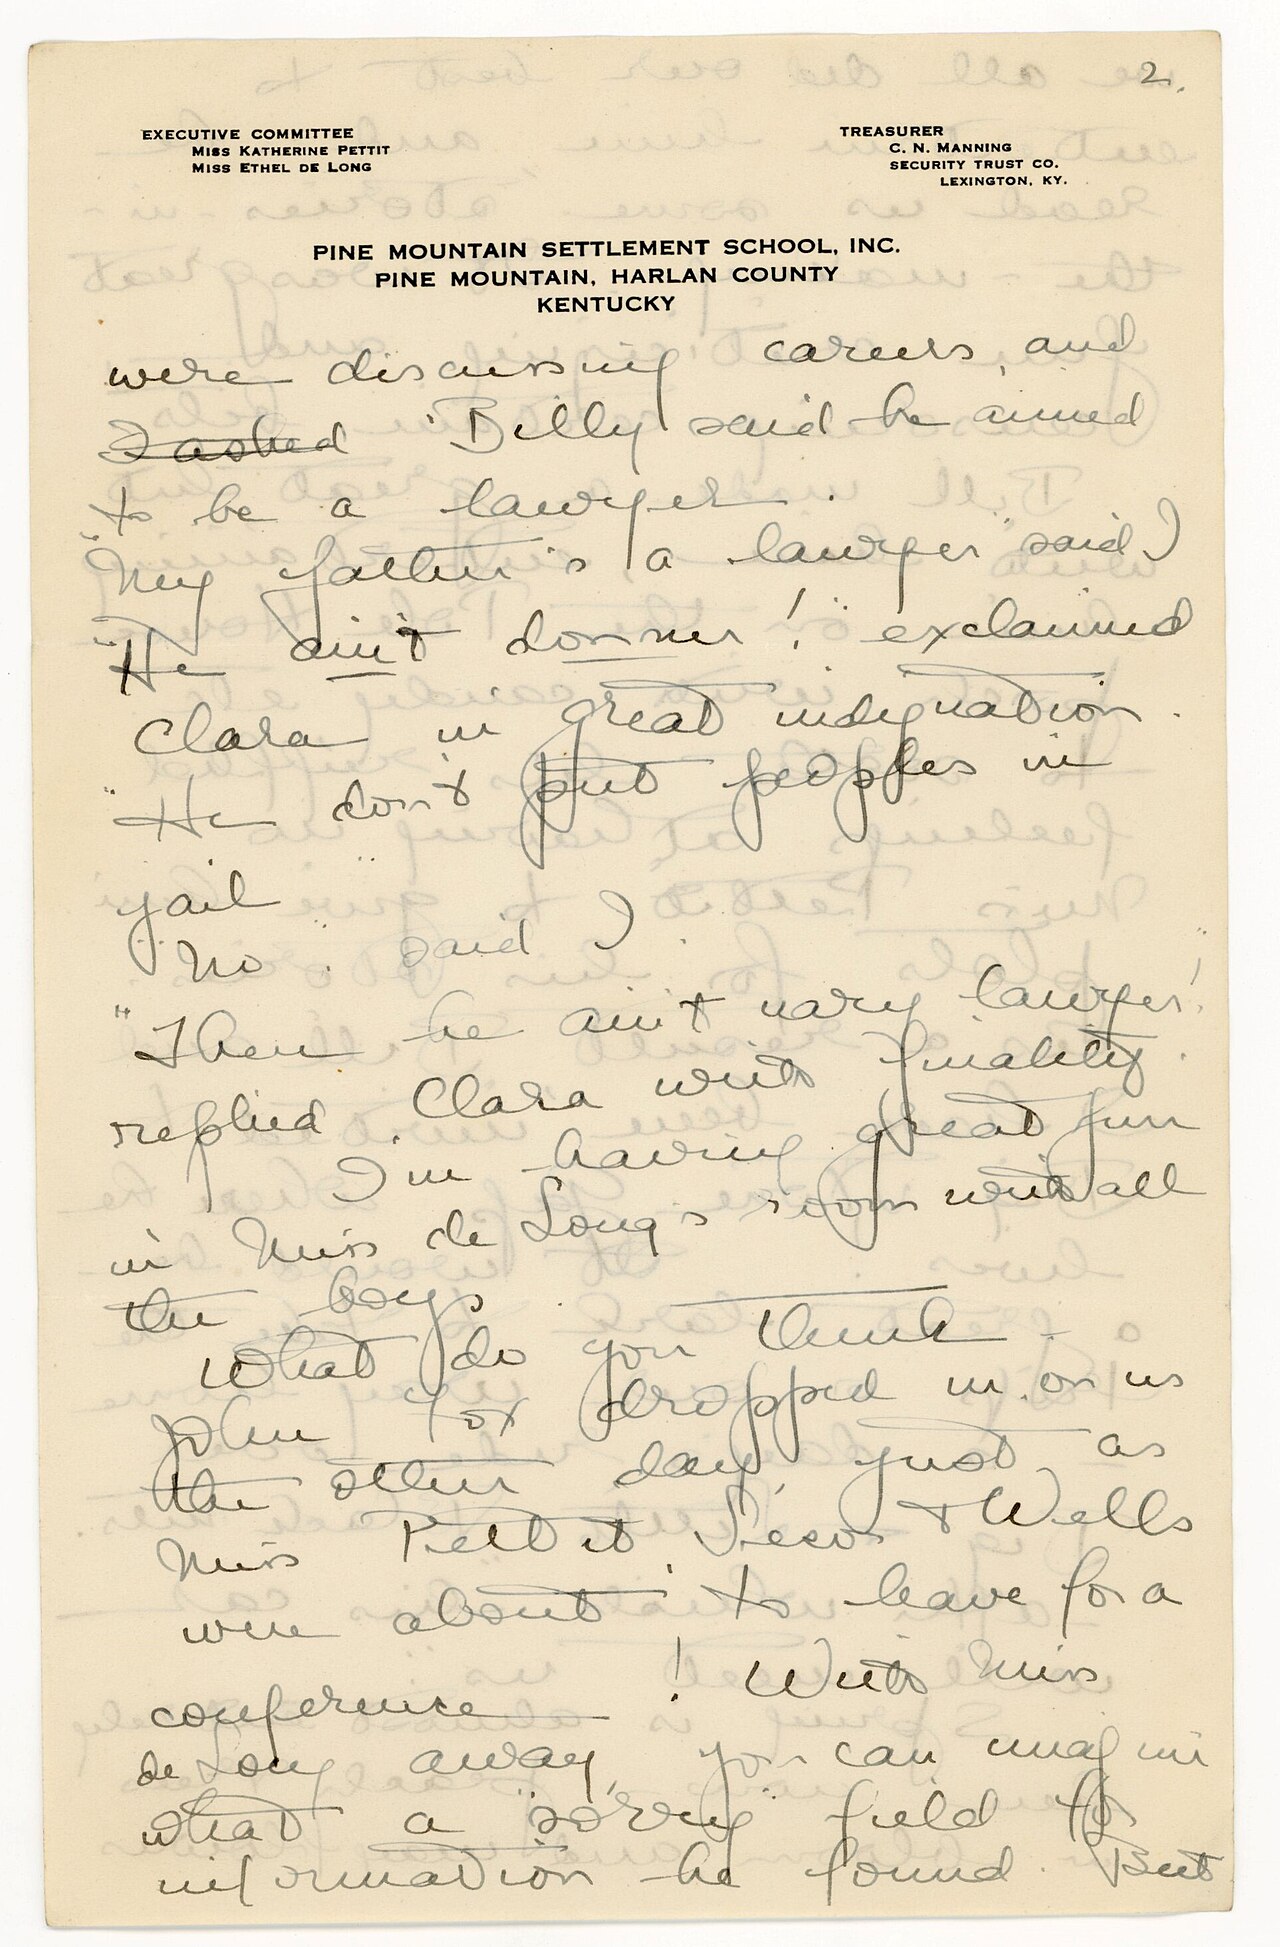 2.
EXECUTIVE COMMITTEE
MISS KATHERINE PETTIT
MISS ETHEL DE LONG
TREASURER
C. N. MANNING
SECURITY TRUST CO.
LEXINGTON, KY.
PINE MOUNTAIN SETTLEMENT SCHOOL, INC.
PINE MOUNTAIN, HARLAN COUNTY
KENTUCKY
were discussing careers, and
I asked Billy said he aimed
to be a lawyer.
"My father's a lawyer" said I
"He ain't donner! exclaimed
Clara in great indignation.
"He don't put peoples in
jail"
"No" said I
"Then he ain't nary lawyer!"
replied Clara with finality.
I'm having great fun
in Miss de Long's room with all
the boys.
What do you think –
John Fox dropped in on us
the other day, just as
Miss Pettit, & Wells
were about to leave for a
conference! With Miss
de Long away, you can imagine
what a "sorry" field for
information he found. But